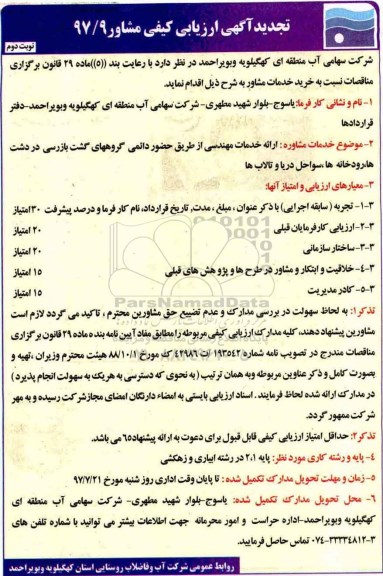 تجدید آگهی ارزیابی کیفی مشاور ۹۷/۹
نوبت دوم
شرکت سهامی آب منطقه ای کهگیلویه وبویراحمد در نظر دارد با رعایت بند ((۵))ماده ۲۹ قانون برگزاری
مناقصات نسبت به خرید خدمات مشاور به شرح ذیل اقدام نماید.
۱- نام و نشانی کار فرما: یاسوج-بلوار شهید مطهری- شرکت سهامی آب منطقه ای کهگیلویه وبویراحمد-دفتر
قراردادها
۲- موضوع خدمات مشاوره: ارائه خدمات مهندسی از طریق حضور دائمی گروههای گشت بازرسی در دشت
ها،رودخانه ها ،سواحل دریا و تالاب ها
۳-معیارهای ارزیابی و امتیاز آنها:
۳-۱- تجربه ( سابقه اجرایی) با ذکر عنوان ، مبلغ ، مدت، تاریخ قرارداد، نام کار فرما و درصد پیشرفت ۳۰امتیاز
۳-۲- ارزیابی کارفرمایان قبلی ۲۰ امتیاز
۳-۳- ساختار سازمانی ۲۰ امتیاز
۳-۴- خلاقیت و ابتکار و مشاور در طرح ها و پژوهش های قبلی ۱۵ امتیاز
۳-۵- کادر مدیریت ۱۵ امتیاز
تذکر۱: به لحاظ سهولت در بررسی مدارک و عدم تضییع حق مشاورین محترم ، تاکید می گردد لازم است
مشاورین پیشنهاد دهند، کلیه مدارک ارزیابی کیفی مربوطه را مطابق مفاد آیین نامه بند ه ماده ۲۹ قانون برگزاری
مناقصات مندرج در تصویب نامه شماره ۱۹۳۵۴۲ /ت ۴۲۹۸۶ ک مورخ ۸۸/۱۰/۱ هیئت محترم وزیران ،تهیه و
بصورت کامل و ذکر عناوین مربوطه وبه همان ترتیب ( به نحوی که دسترسی به هریک به سهولت انجام پذیرد )
در مدارک ارائه شده لحاظ فرمایند . اسناد ارزیابی بایستی به امضاء دارنگان امضای مجازشرکت رسیده و به مهر
شرکت ممهور گردد.
تذکر۲: حداقل امتیاز ارزیابی کیفی قابل قبول برای دعوت به ارائه پیشنهاد۶۵ می باشد.
۴- پایه و رشته کاری مورد نظر: پایه ۲،۱ در رشته ابیاری و زهکشی
۵- زمان و مهلت تحویل مدارک تکمیل شده : تا پایان وقت اداری روز شنبه مورخ ۹۷/۷/۲۱
۶- محل تحویل مدارک تکمیل شده: یاسوج-بلوار شهید مطهری- شرکت سهامی آب منطقه ای
کهگیلویه وبویراحمد-اداره حراست و امور محرمانه جهت اطلاعات بیشتر می توانید با شماره تلفن های
۳-۰۷۴-۳۳۳۳۴۸۱۲ تماس حاصل فرمایید.
روابط عمومی شرکت آب وفاضلاب روستایی استان کهگیلویه وبویراحمد
ParsNamadData